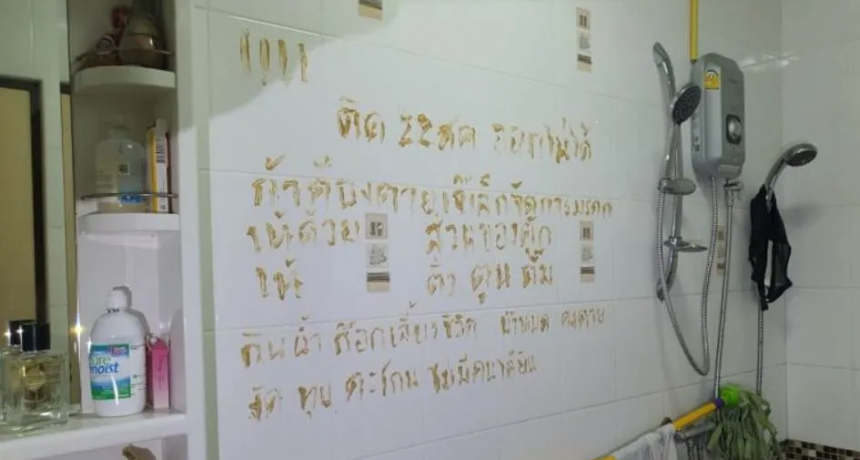 ติด 22สค ออกไม่ได้
ถ้าต้องตายเจ๊เล็กจัดการมรดก
ให้ด้วย ส่วนของตุ๊ก
ให้ ติ๋ว ตูน ตั้ม
กินน้ำ ก๊อกเลี้ยงชีวิต น้ำหมด คงตาย
งัด ทุบ ตะโกน ไม่มีคนได้ยิน
moist